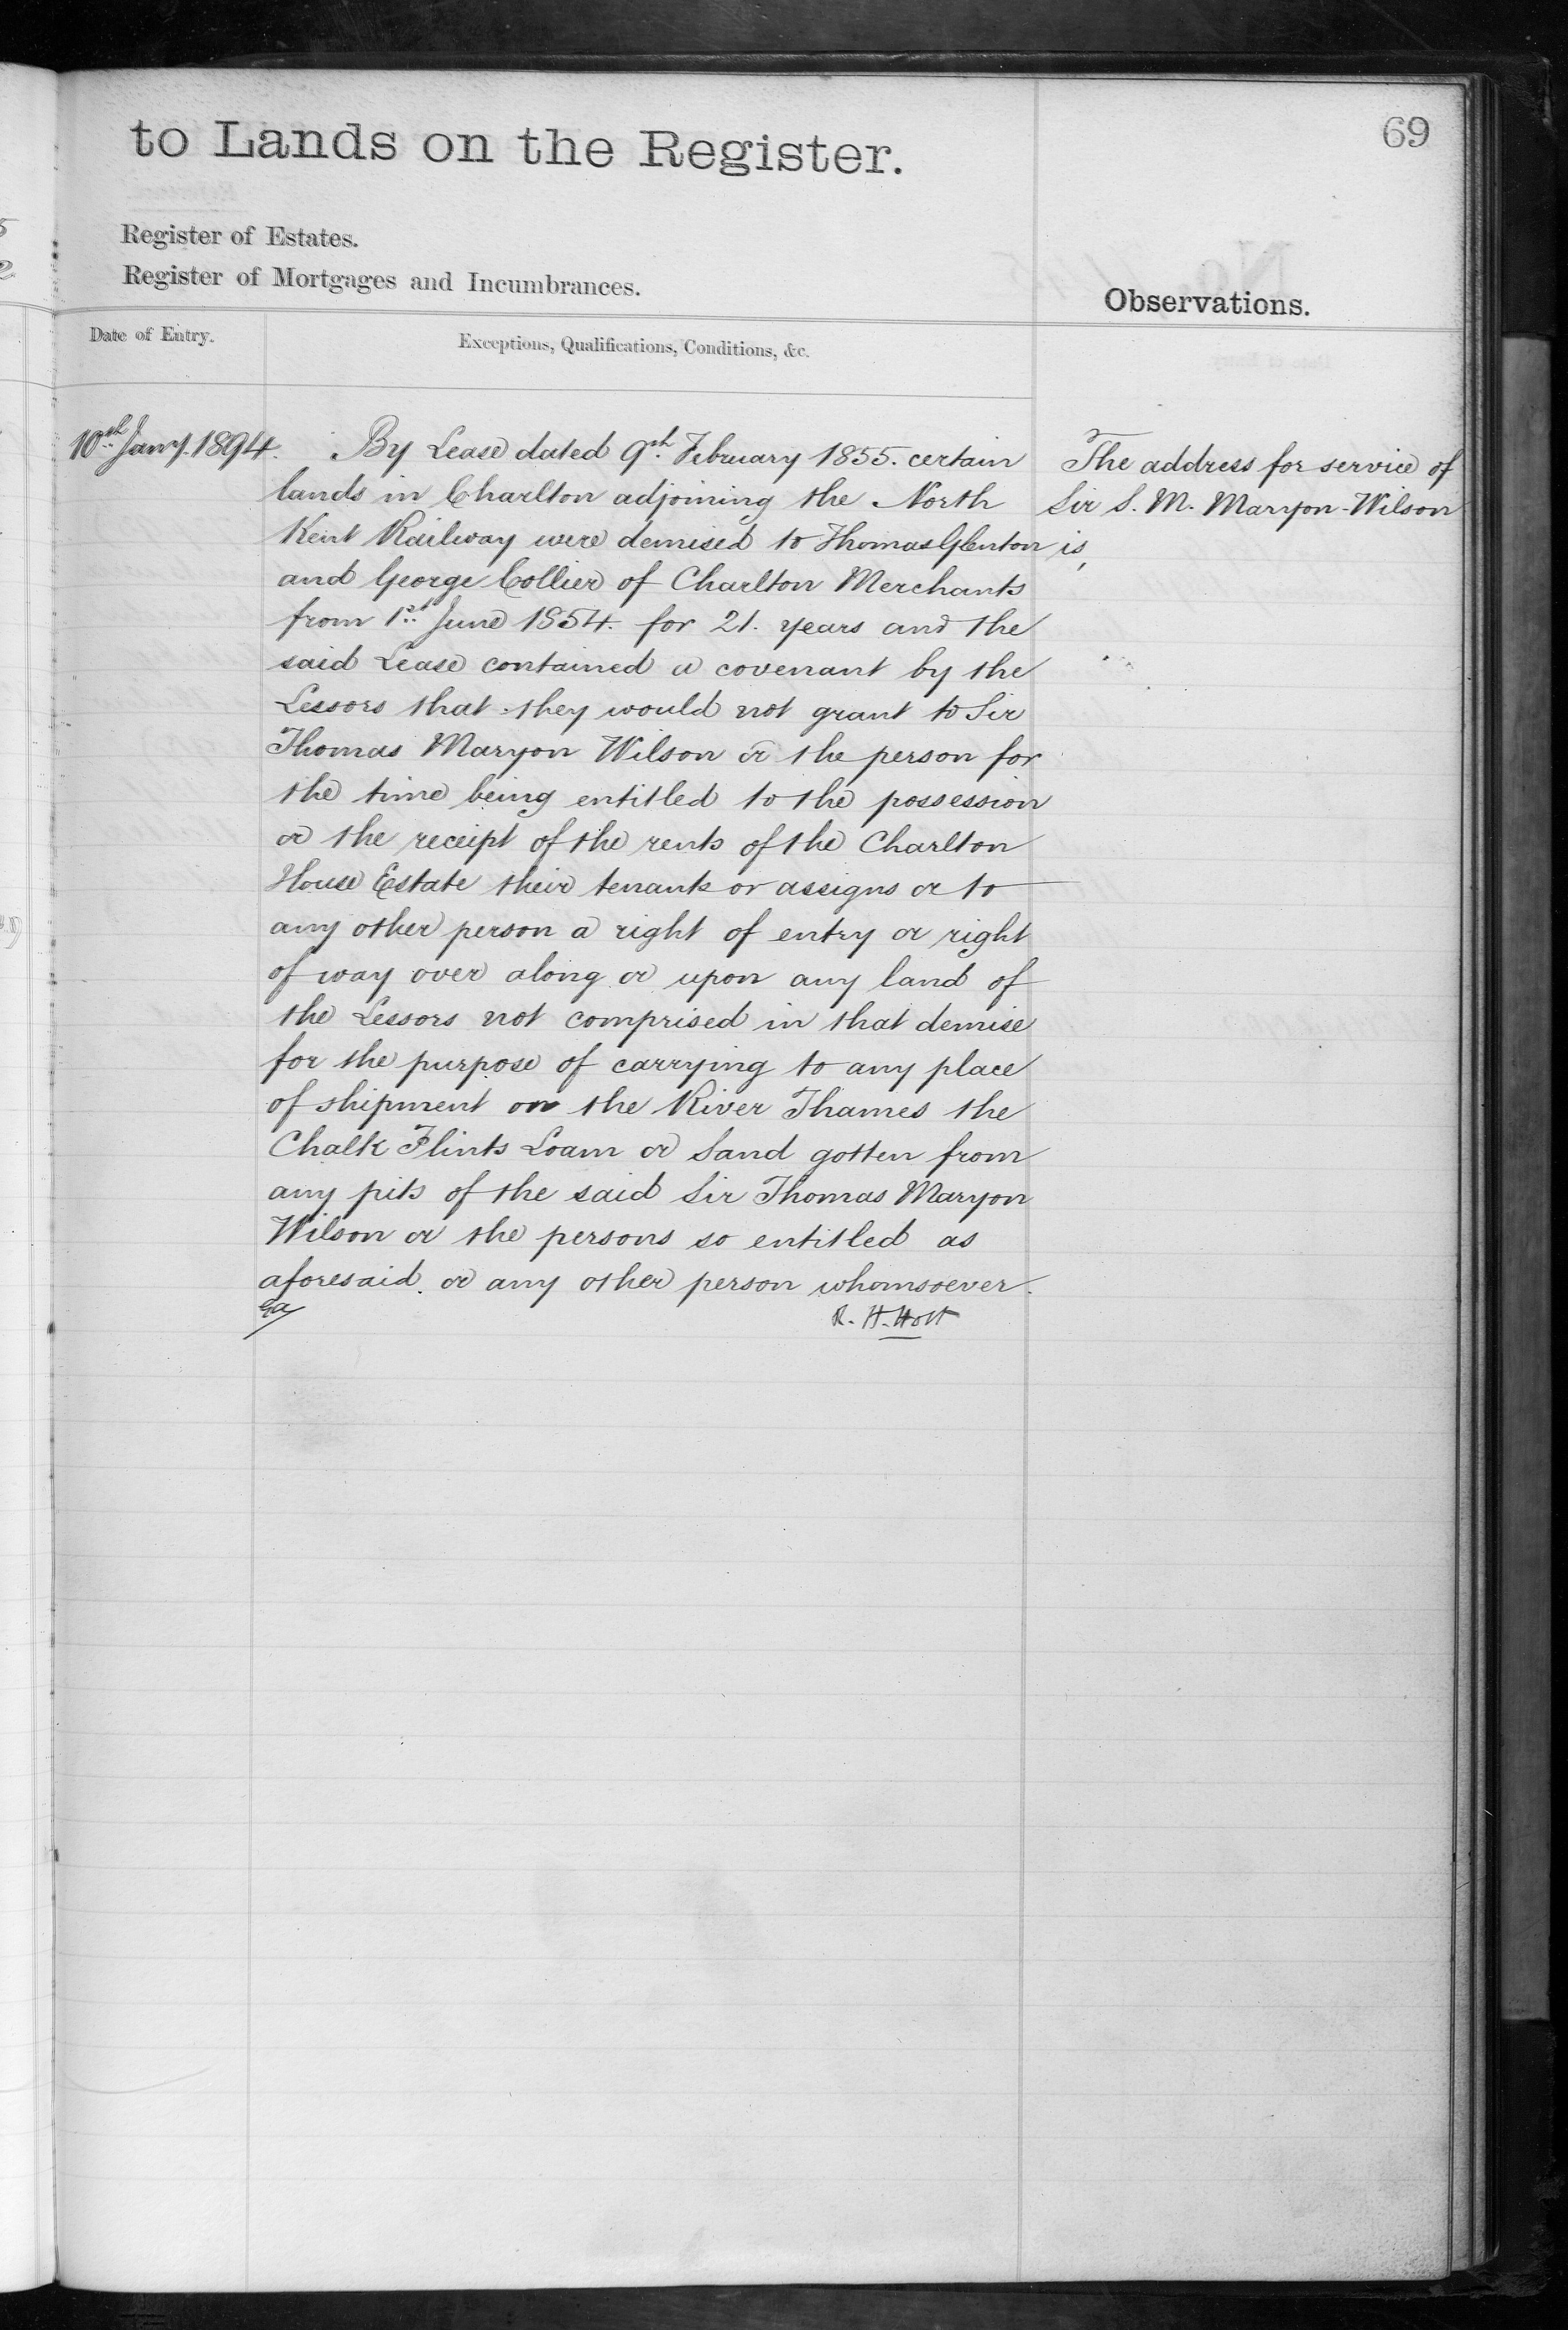 69
to Lands on the Register.
Register of Estates.
Register of Mortgages and Incumbrances.
Observations.
Date of Entry.
Exceptions, Qualifications, Conditions, &c.
10th Jany. 1894.
By Lease dated 9th February 1855. certain
lands in Charlton adjoining the North
Kent Railway were demised to Thomas Glenton
and George Collier of Charlton Merchants
from 1st June 1854. for 21. years and the
said Lease contained a covenant by the
Lessors that they would not grant to Sir
Thomas Maryon Wilson or the person for
the time being entitled to the possession
or the receipt of the rents of the Charlton
House Estate their tenants or assigns or to
any other person a right of entry or right
of way over along or upon any land of
the Lessors not comprised in that demise
for the purpose of carrying to any place
of shipment on the River Thames the
Chalk Flints Loam or Sand gotten from
any pits of the said Sir Thomas Maryon
Wilson or the persons so entitled as
aforesaid. or any other person whomsoever.
R. H. Holt
The address for service of
Sir S. M. Maryon-Wilson
is,